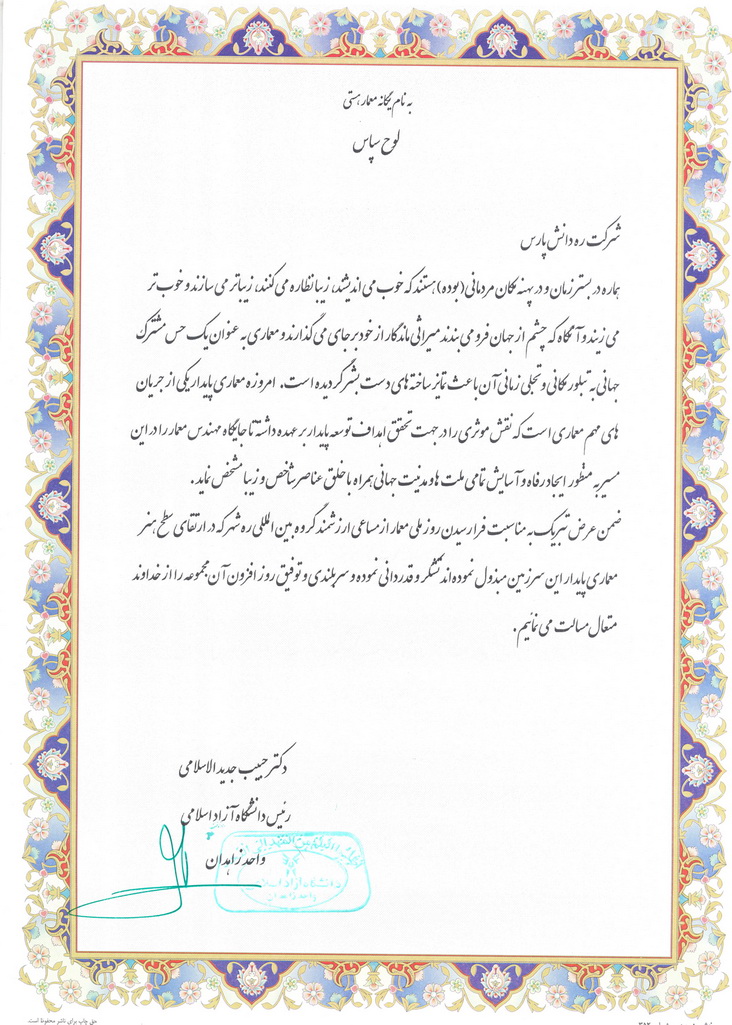 به نام یگانه معمار هستی
لوح سپاس
شرکت ره دانش پارس
هماره در بستر زمان و در پهنه مکان مردمانی (بوده) هستند که خوب می اندیشند، زیبا نظاره می کنند، زیباتر می سازند و خوب تر
می زیند و آنگاه که چشم از جهان فرو می بندند میراثی ماندگار از خود بر جای می گذارند و معماری به عنوان یک حس مشترک
جهانی به تبلور مکانی و تجلی زمانی آن باعث تمایز ساخته های دست بشر گردیده است. امروزه معماری پایدار یکی از جریان
های مهم معماری است که نقش موثری را در جهت تحقق اهداف توسعه پایدار بر عهده داشته تا جایگاه مهندس معمار را در این
مسیر به منظور ایجاد رفاه و آسایش تمامی ملت ها و مدنیت جهانی همراه با خلق عناصر شاخص و زیبا مشخص نماید.
ضمن عرض تبریک به مناسبت فرا رسیدن روز ملی معمار از مساعی ارزشمند گروه بین المللی ره شهر که در ارتقای سطح هنر
معماری پایدار این سرزمین مبذول نموده اند تشکر و قدردانی نموده و سربلندی و توفیق روز افزون آن مجموعه را از خداوند
متعال مسالت می نمائیم.
دکتر حبیب جدید الاسلامی
رئیس دانشگاه آزاد اسلامی
واحد زاهدان
دانشگاه آزاد اسلامی
واحد زاهدان
حق چاپ برای ناشر محفوظ است.